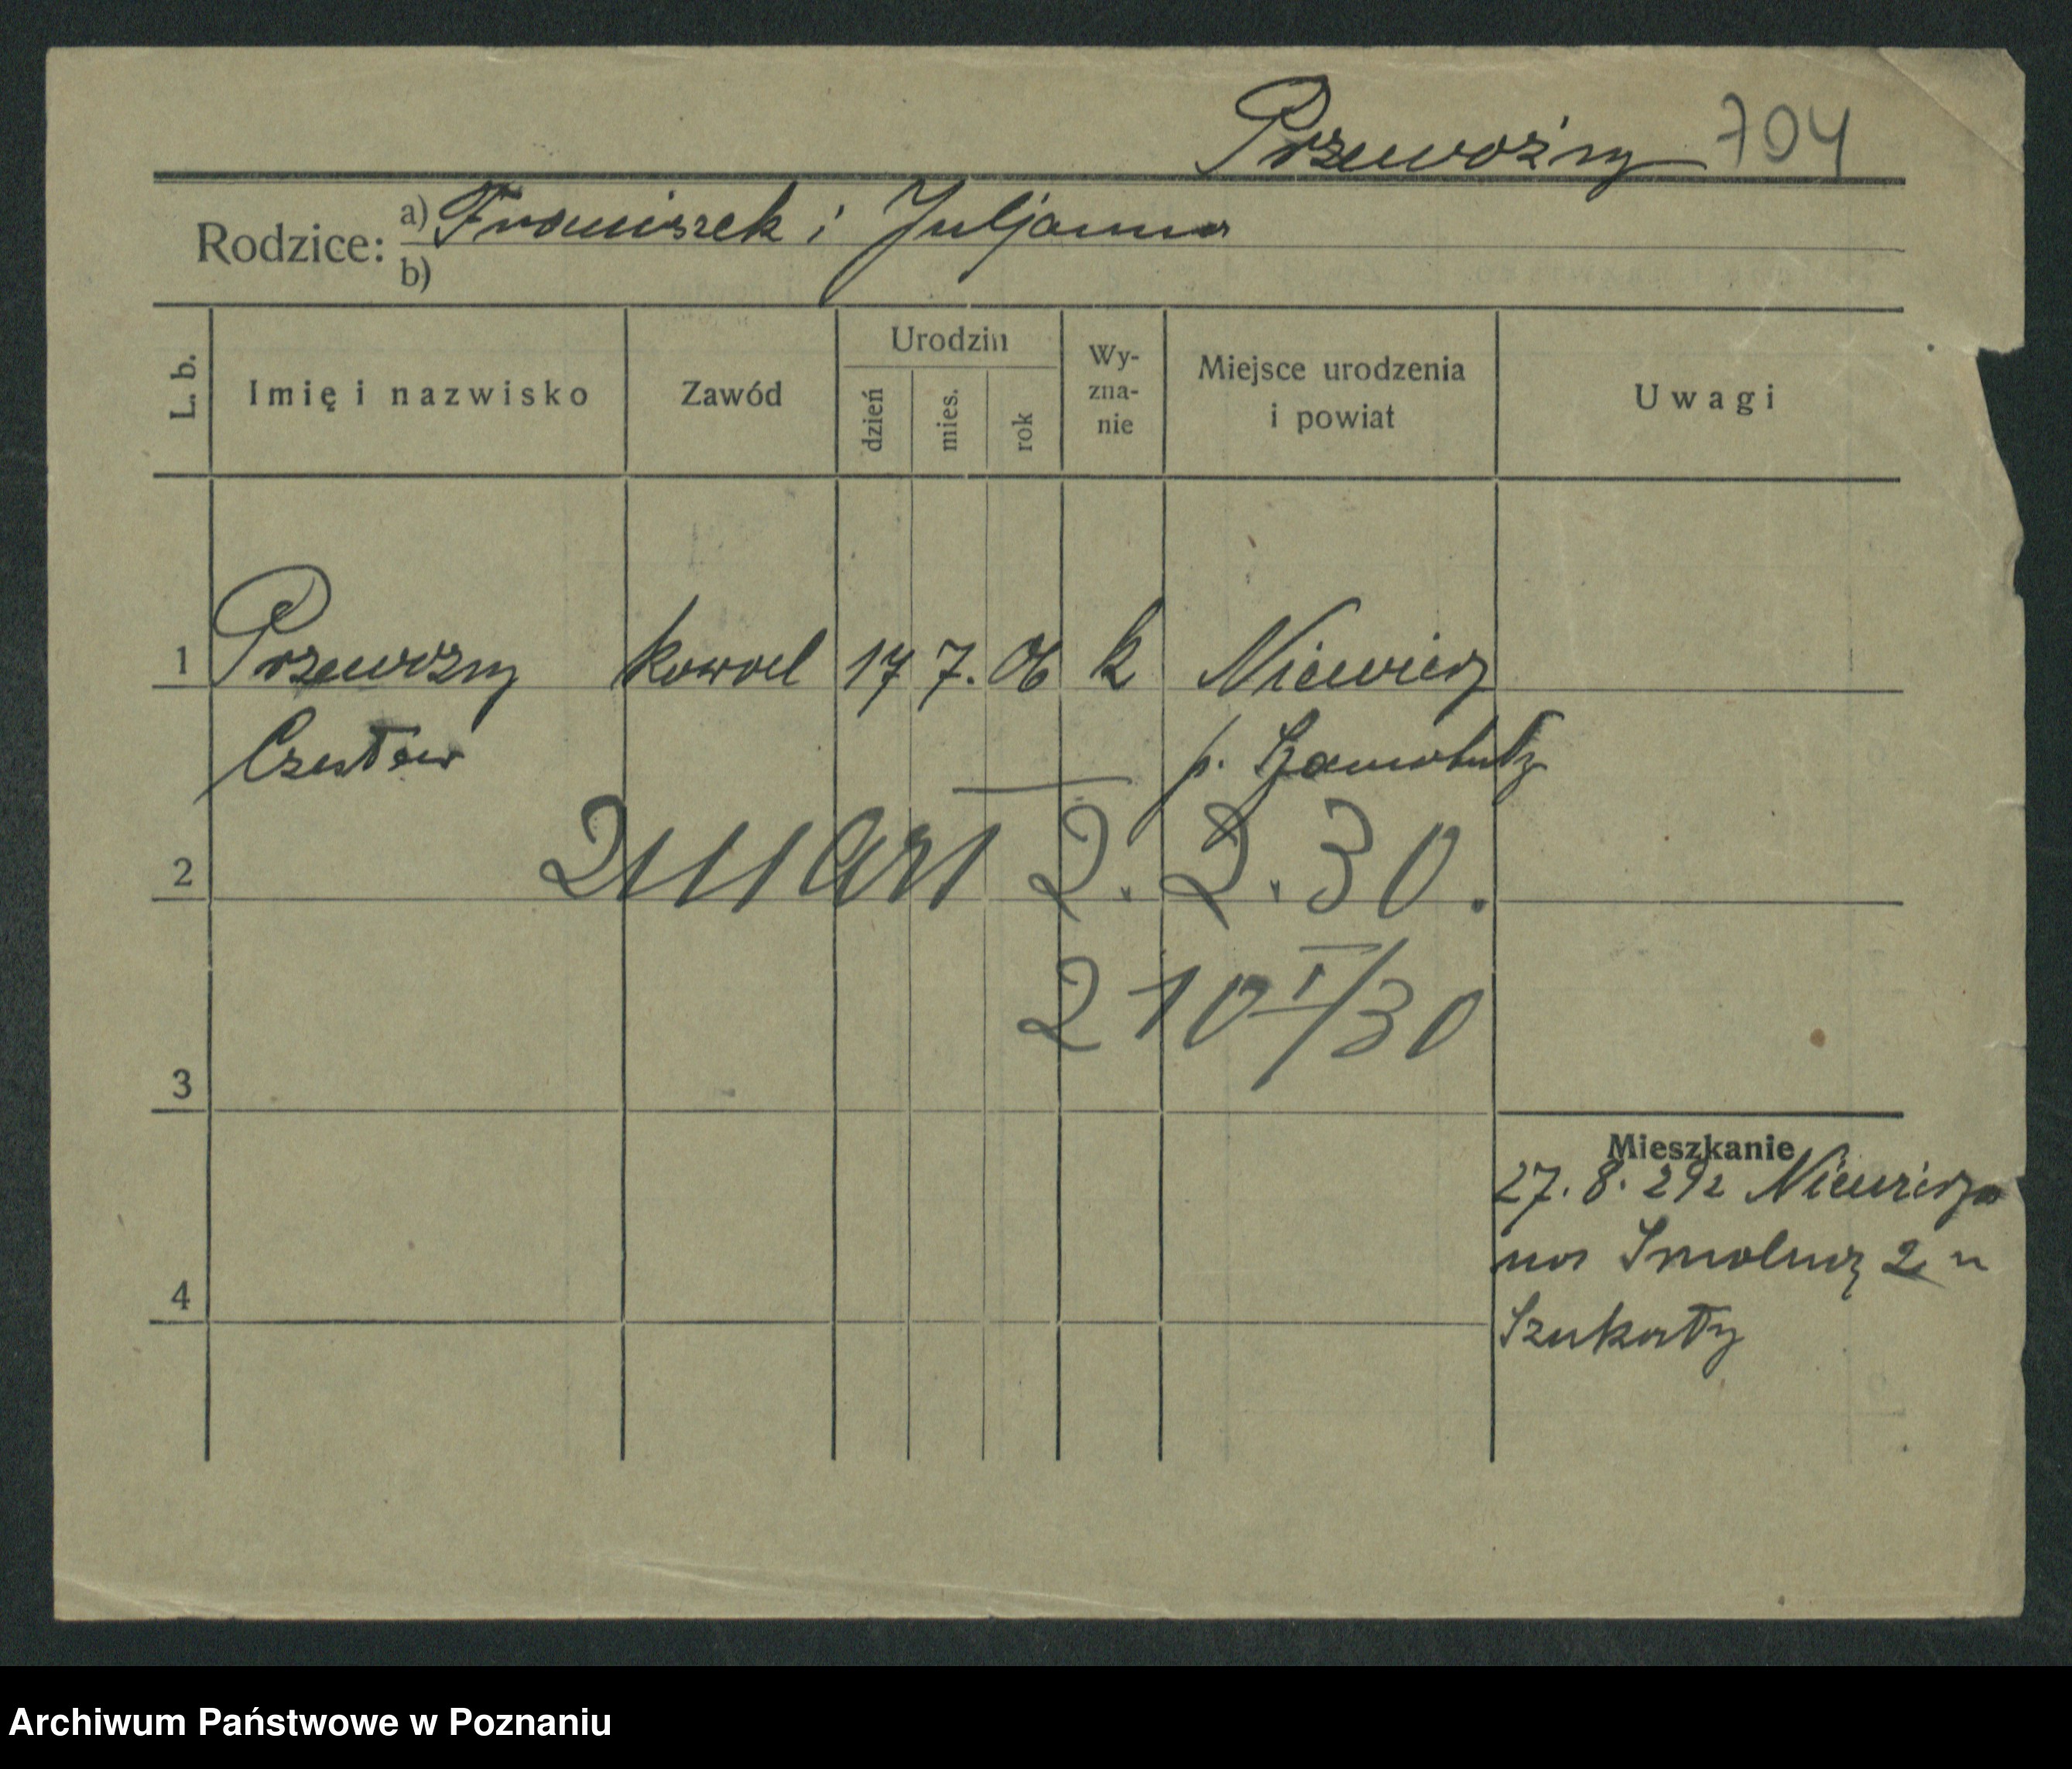 Przewoźny 704
Rodzice: a) Franciszek i Juljanna
b)
L. b. Imię i nazwisko Zawód Urodzin dzień mies. rok Wy-zna-nie Miejsce urodzenia i powiat Uwagi
1 Przewozny kowal 17 7. 06 k Niewierz
Czesław p. Szamotuły
2 Zmarł 2. 2. 30.
2 10 I/30
3
Mieszkanie
27. 8. 29 z Niewierza
na Smolnej 2 u
4 Szukały
Archiwum Państwowe w Poznaniu